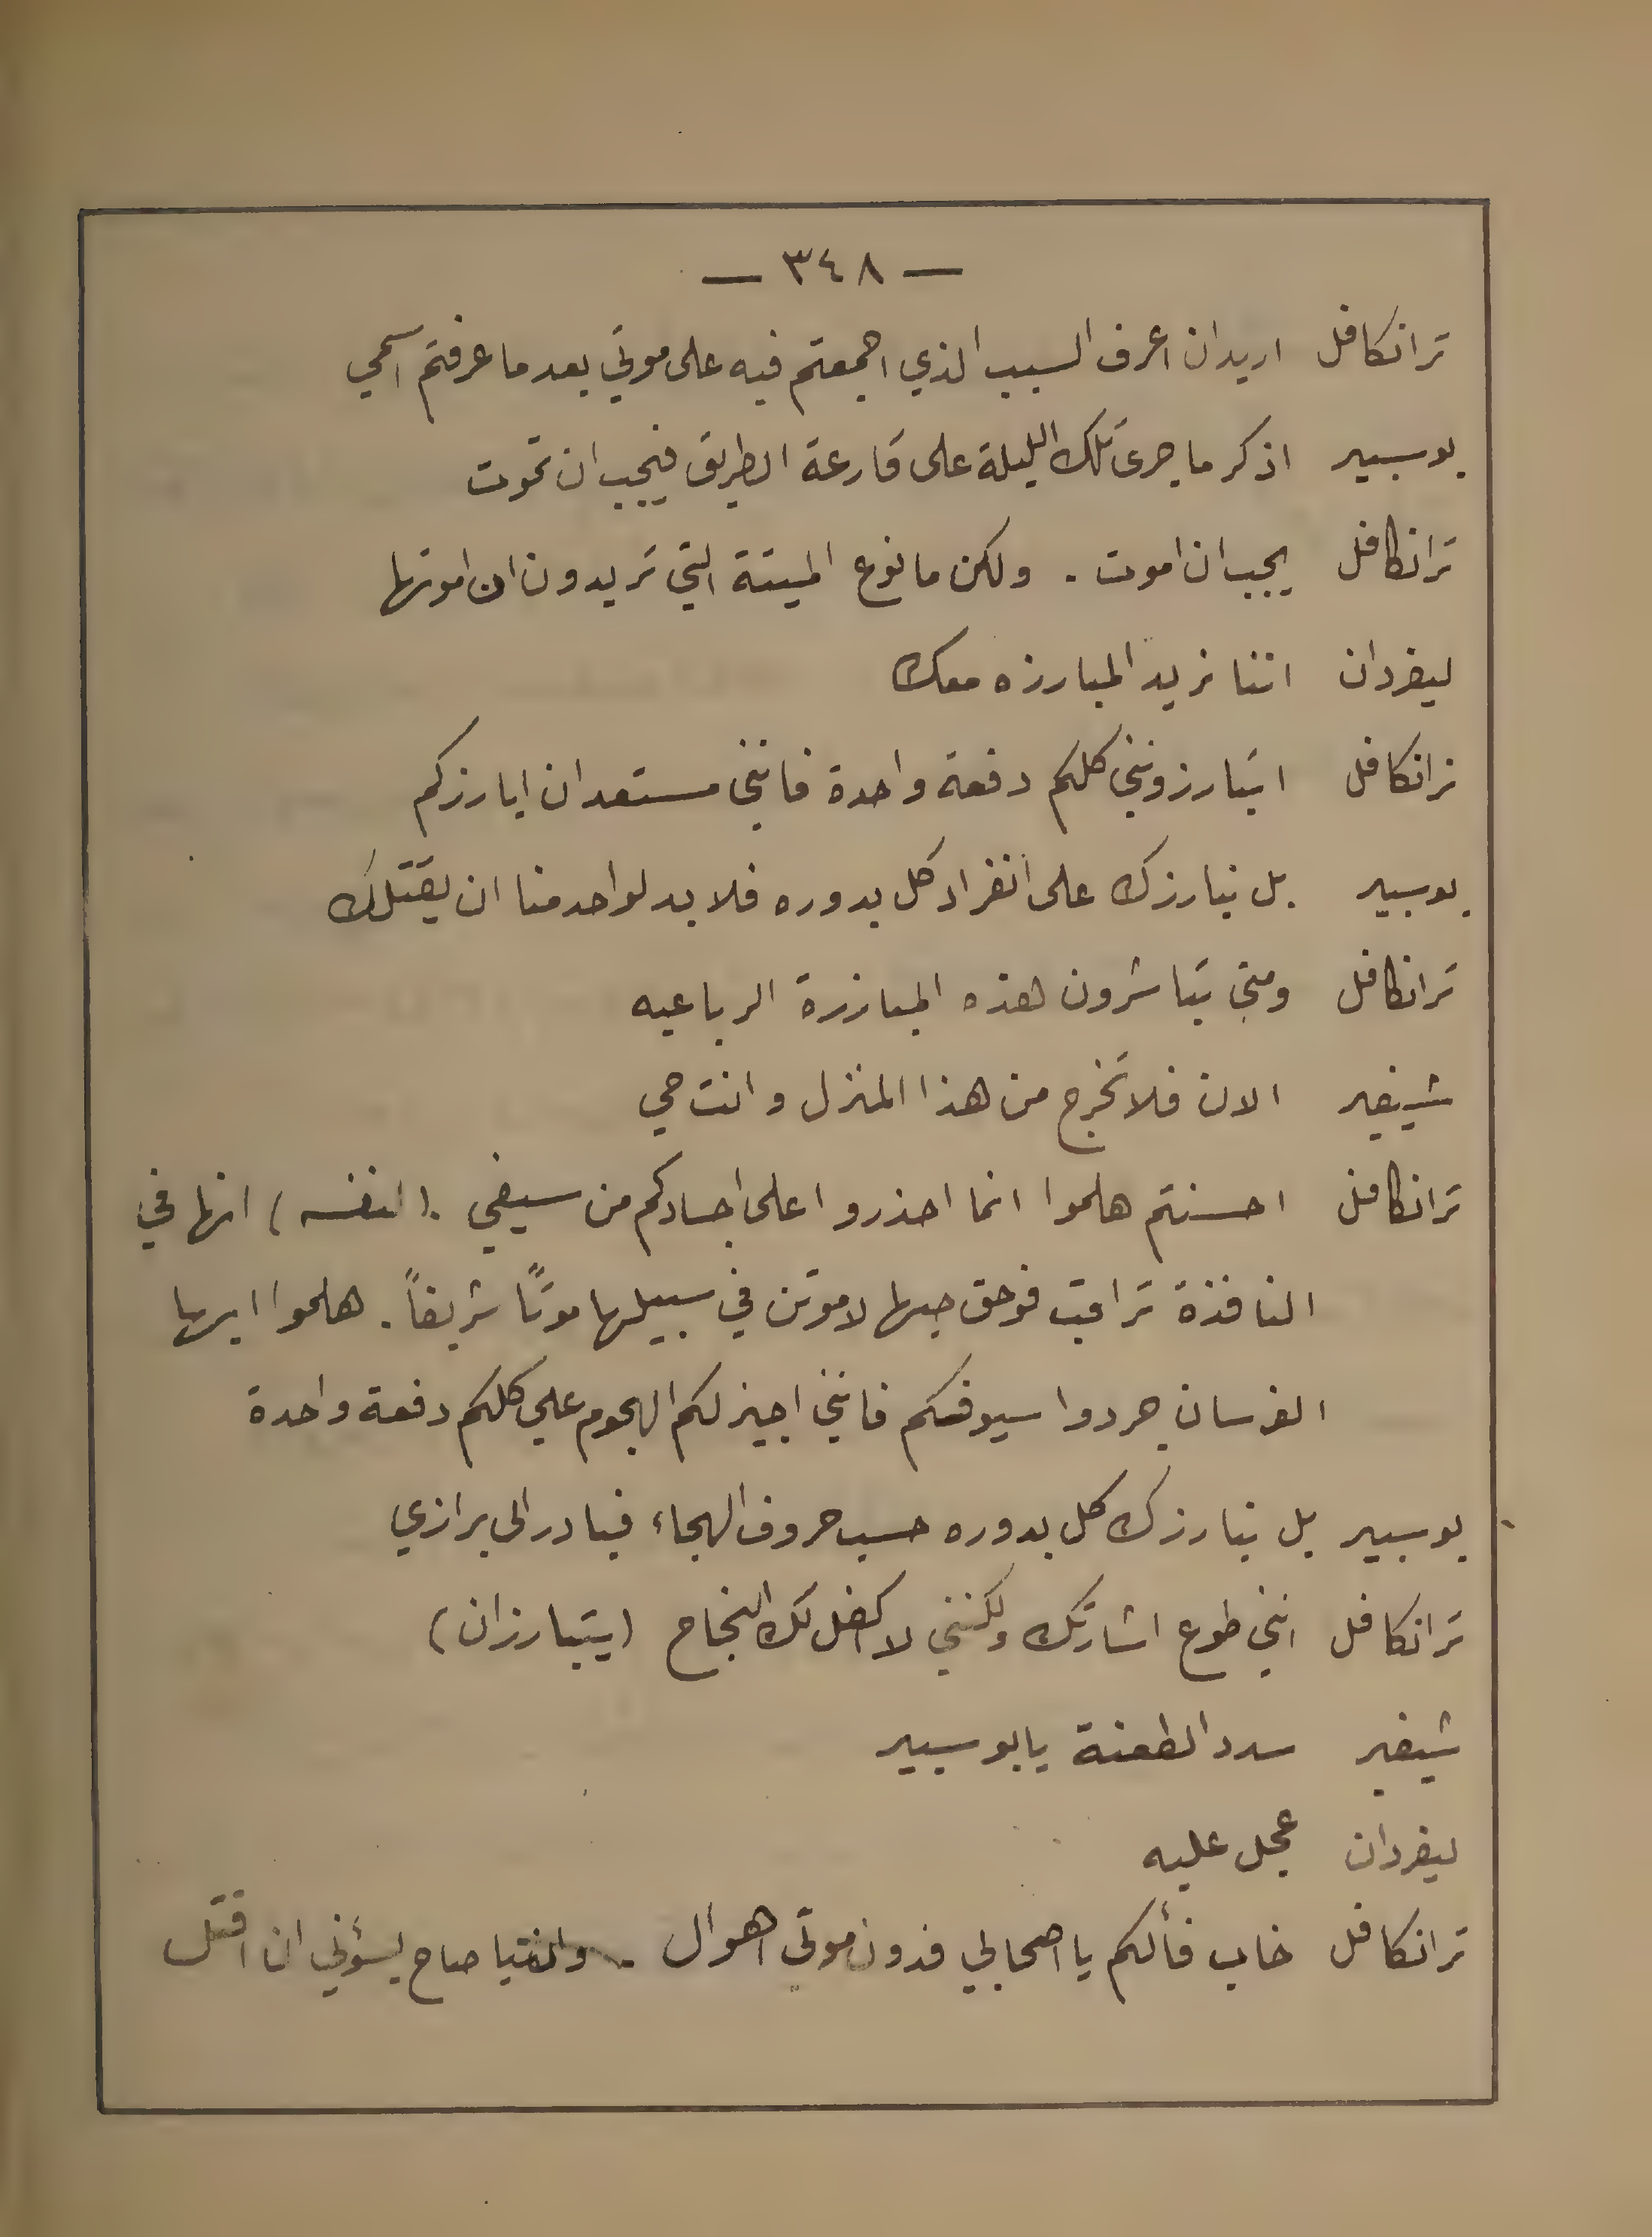 — ٣٤٨ —
ترانكافل اريد ان اعرف السبب الذي اجمعتم فيه على موتي بعد ما عرفتم اسمي
بوسيير اذكر ما جرى تلك الليلة على قارعة الطريق فيجب ان تموت
ترانكافل يجب ان اموت . ولكن ما نوع الميتة التي تريدون ان اموتها
ليفردان اننا نريد المبارزه معك
ترانكافل اتبارزونني كلكم دفعة واحدة فانني مستعد ان ابارزكم
بوسيير بل نبارزك على انفراد كل بدوره فلا بد لواحد منا ان يقتلك
ترانكافل ومتى تباشرون هذه المبارزة الرباعيه
شيفير الان فلا تخرج من هذا المنزل وانت حي
ترانكافل احسنتم هلموا انما احذروا على اجسادكم من سيفي . (لنفسه) انها في
النافذة تراقب فوحق حبها لاموتن في سبيلها موتاً شريفاً . هلموا ايها
الفرسان جردوا سيوفكم فانني اجيز لكم الهجوم علي كلكم دفعة واحدة
بوسيير بل نبارزك كل بدوره حسب حروف الهجاء فبادر الى برازي
ترانكافل انني طوع اشارتك ولكنني لا اكفل لك النجاح (يتبارزان)
شيفير سدد الطعنة يا بوسيير
ليفردان عجل عليه
ترانكافل خاب فألكم يا اصحابي فدون موتي اهوال . وانت يا صاح يسؤني ان اقتل